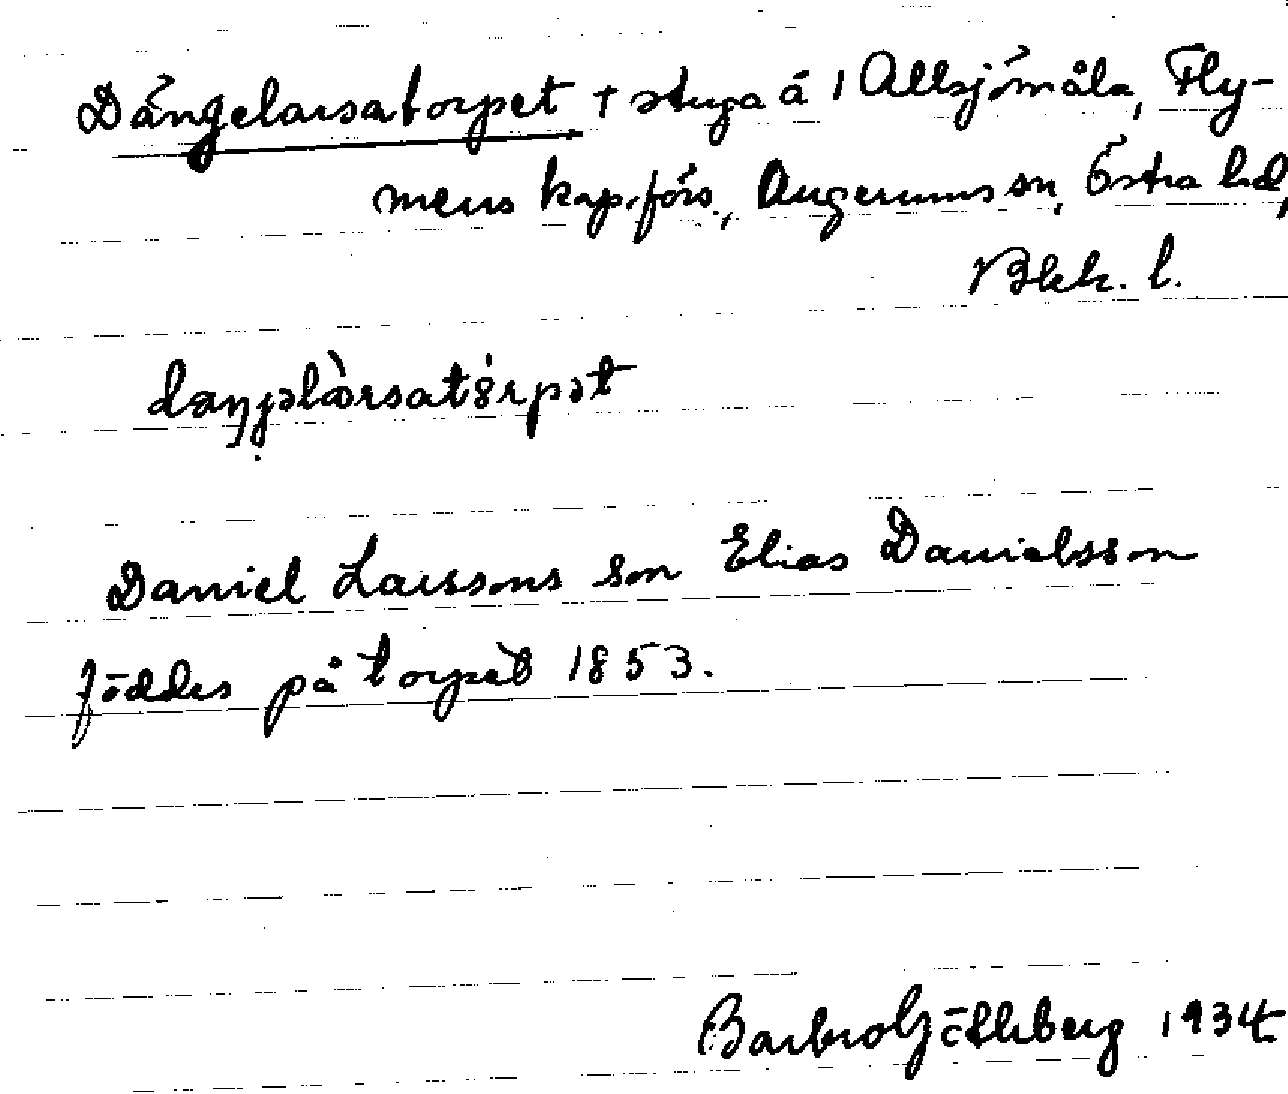 Dángelarsatorpet † stuga å 1 Allsjömåla, Fly-
mens kap.förs., Augerums sn, Östra hd,
Blek. l.
Daniel Larssons son Elias Danielsson
föddes på torpet 1853.
Barbro Göthberg 1934